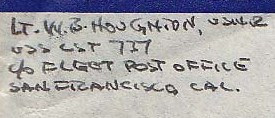 LT. W.B. HOUGHTON, USNR
USS LST 737
C/O FLEET POST OFFICE
SAN FRANCISCO, CAL.